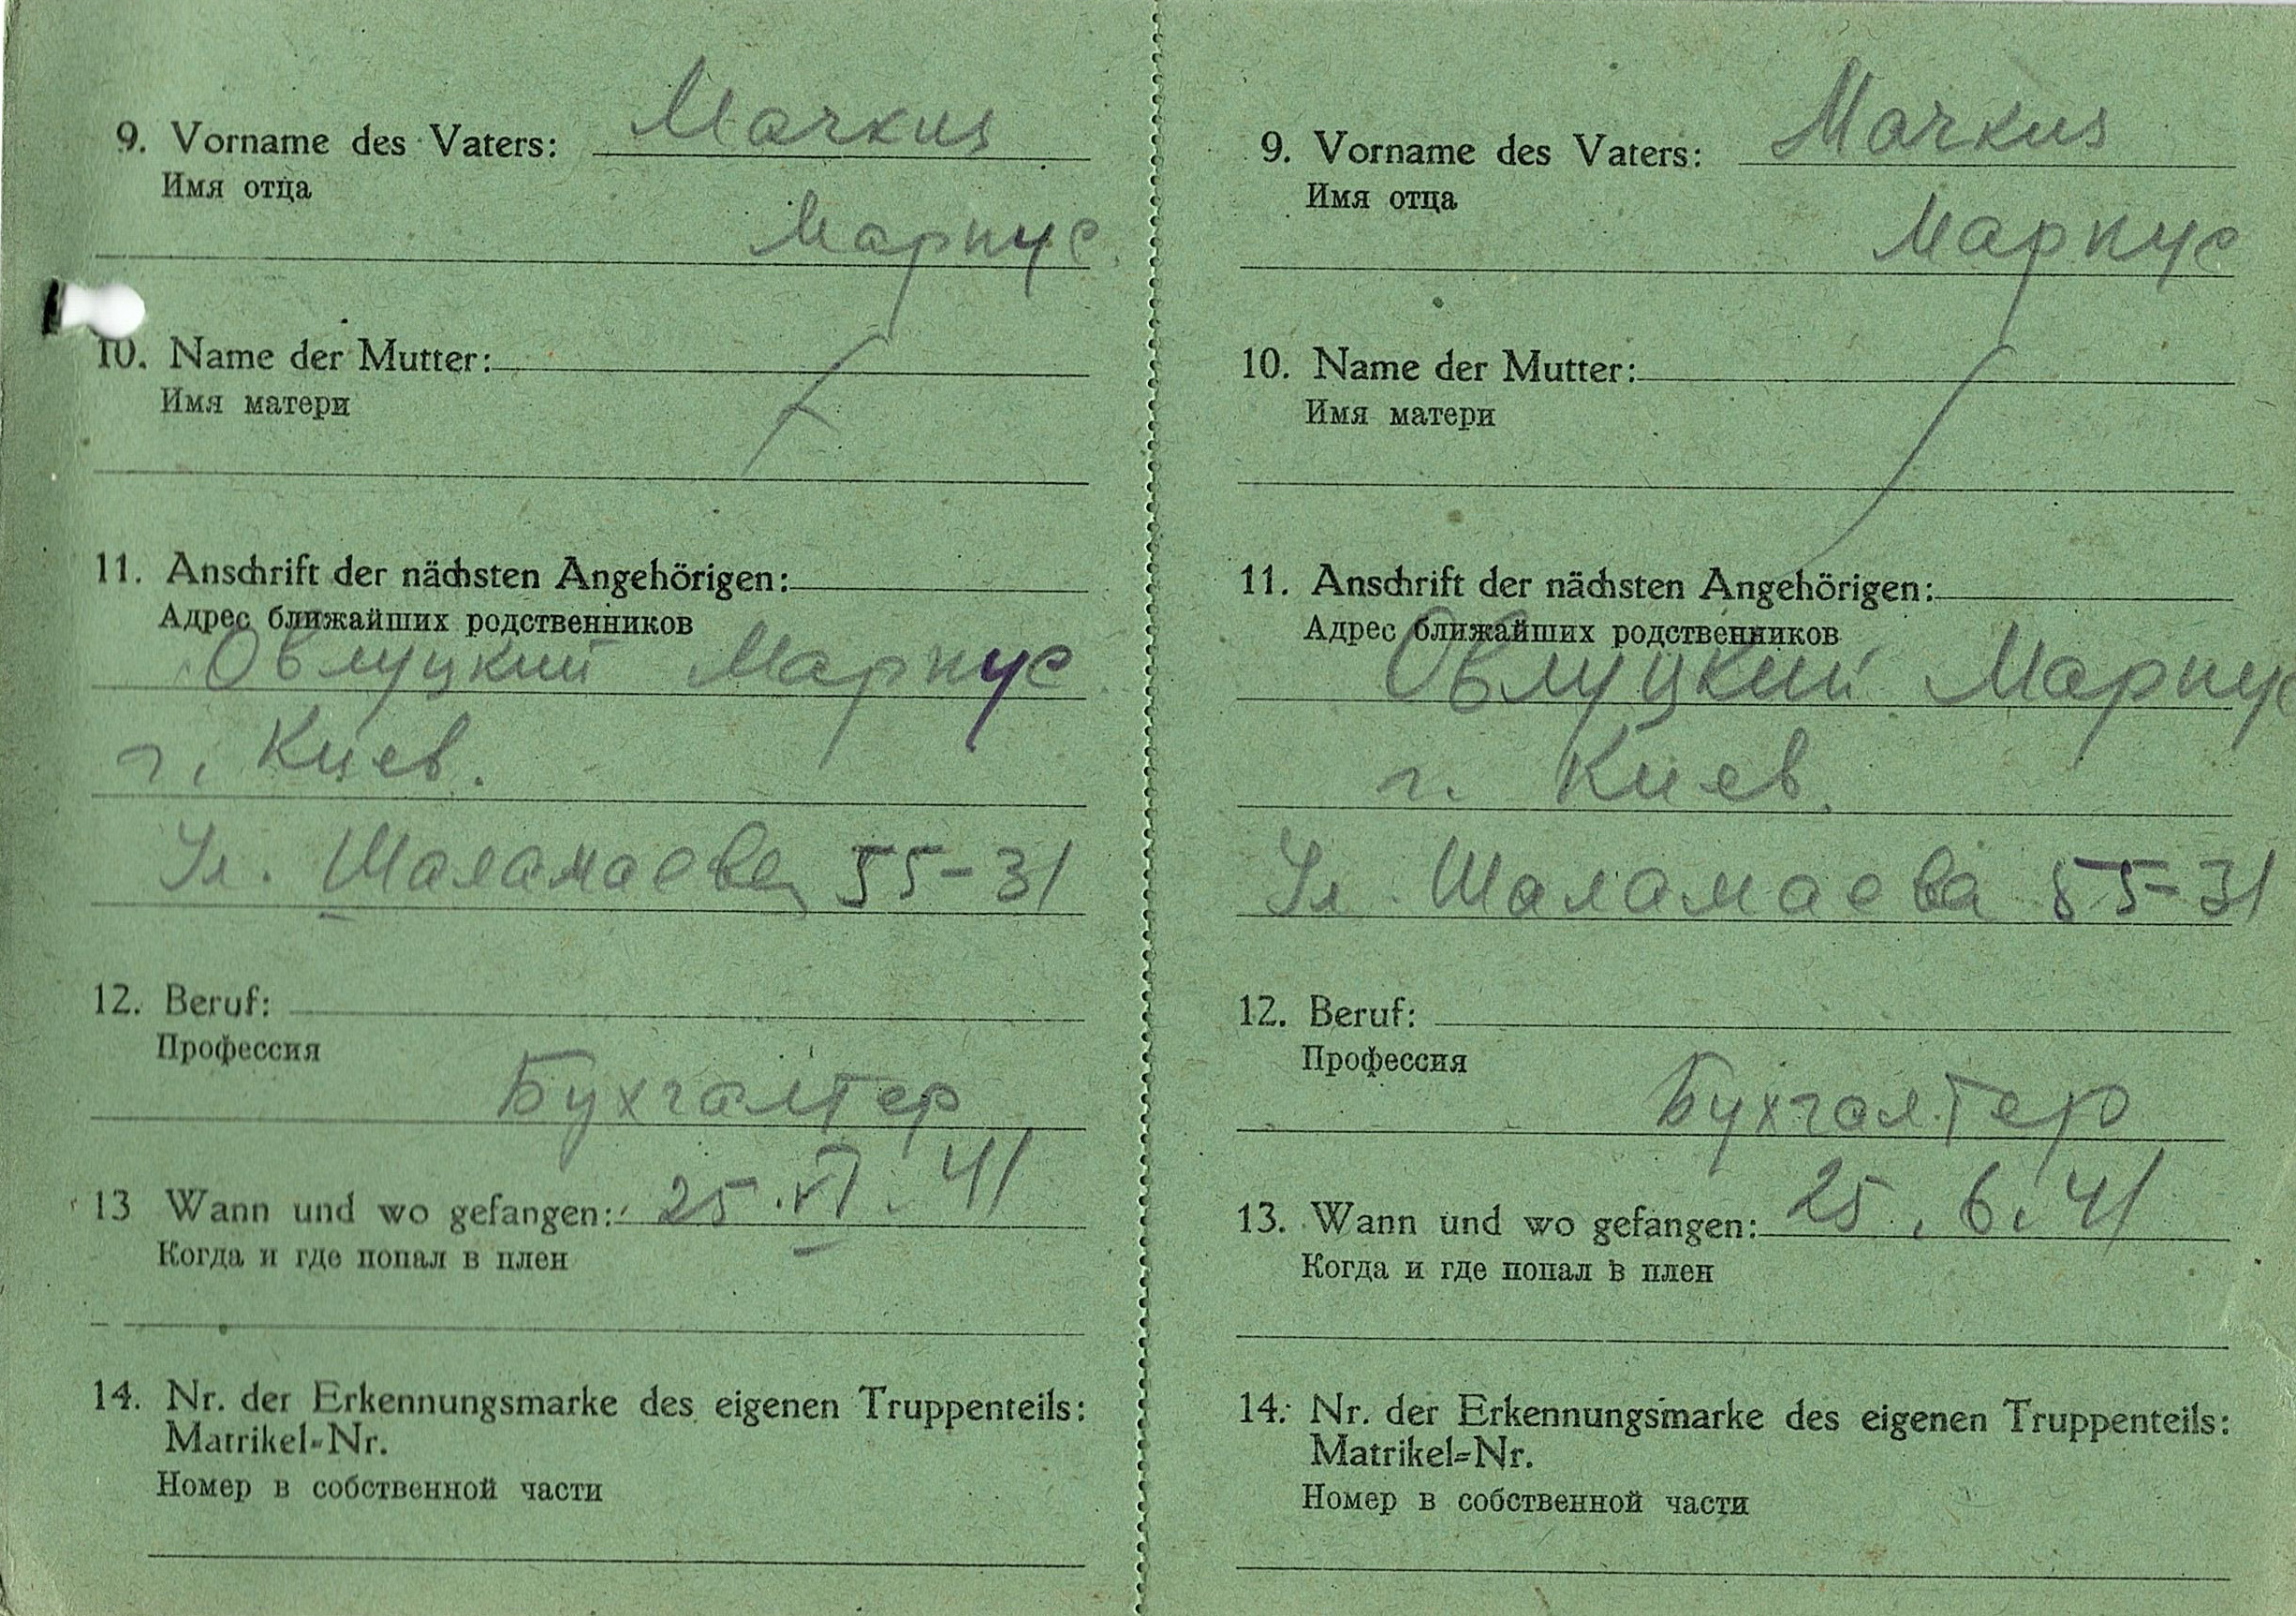 9. Vorname des Vaters: Markus
Имя отца
Маркус.
10. Name der Mutter:
Имя матери
11. Anschrift der nächsten Angehörigen:
Адрес ближайших родственников
Овлуцкий Маркус.
г. Киев.
Ул. Шаламаева 55-31
12. Beruf:
Профессия
Бухгалтер
13 Wann und wo gefangen: 25.VI.41
Когда и где попал в плен
14. Nr. der Erkennungsmarke des eigenen Truppenteils:
Matrikel-Nr.
Номер в собственной части
9. Vorname des Vaters: Markus
Имя отца
Маркус
10. Name der Mutter:
Имя матери
11. Anschrift der nächsten Angehörigen:
Адрес ближайших родственников
Овлуцкий Маркус
г. Киев.
Ул. Шаламаева 55-31
12. Beruf:
Профессия
Бухгалтер
13. Wann und wo gefangen: 25.6.41
Когда и где попал в плен
14. Nr. der Erkennungsmarke des eigenen Truppenteils:
Matrikel-Nr.
Номер в собственной части